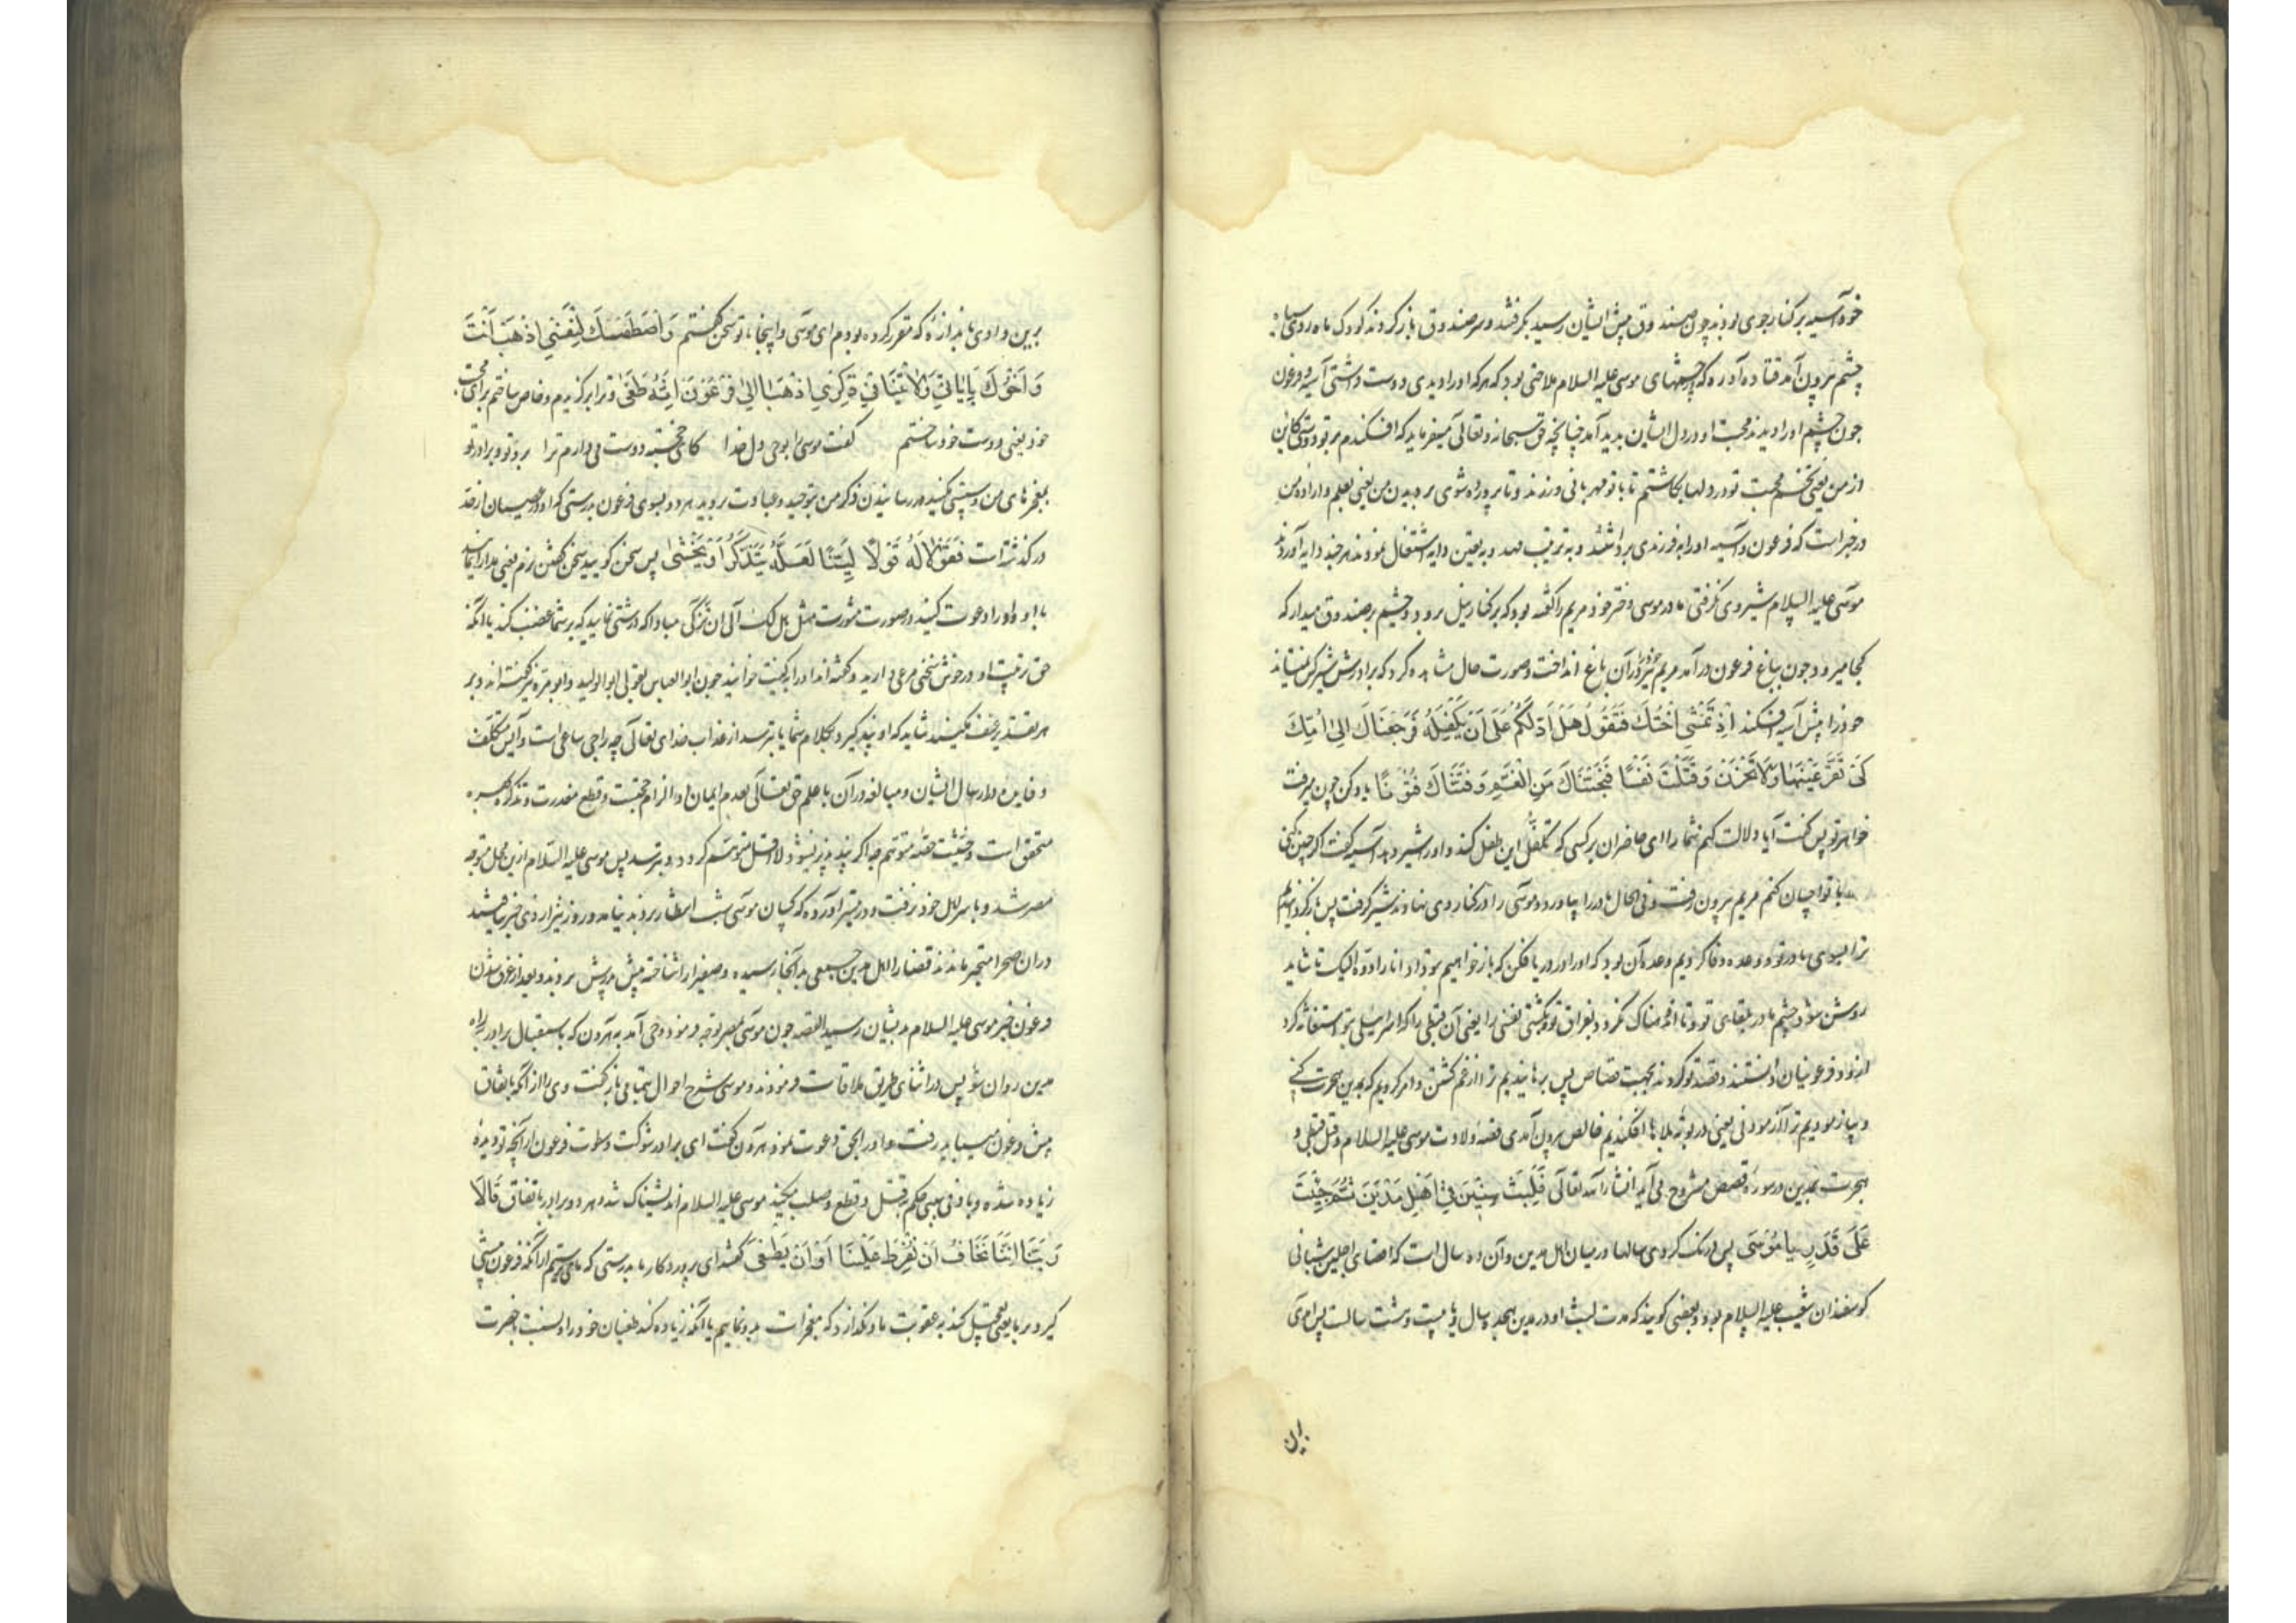 خود آسیه بر کنار جوی بودند چون صندوق پیش ایشان رسید بگرفتند و سر صندوق باز کردند کودک ماه روی سیاه
چشم بیرون آمد قتاده آورده که در چشمهای موسی علیه السلام ملاحتی بود که هر که او را دیدی دوست داشتی آسیه و فرعون
چون چشم او را دیدند محبت او در دل ایشان پدید آمد چنانچه حق سبحانه و تعالی میفرماید که افکندم بر تو دوستی کاین
از من یعنی تخم محبت تو در دلها بکاشتم تا با تو مهربانی ورزند و تا پرورده شوی بر دیدن من یعنی بعلم و اراده من
در خبر است که فرعون و آسیه او را بفرزندی برداشتند و به ترتیب مهد و به تعیین دایه اشتغال نمودند هر چند دایه آوردند
موسی علیه السلام شیر وی نگرفتی مادر موسی دختر خود مریم را گفته بود که بر کنار نیل برو و چشم بر صندوق میدار که
کجا میرود چون بباغ فرعون درآمد مریم خود را در آن باغ انداخت و صورت حال مشاهده کرد که برادرش شیر کس نمیستاند
خود را پیش آسیه افکند اِذْ تَمْشِي اُخْتُكَ فَتَقُولُ هَلْ اَدُلُّكُمْ عَلَى اَنْ يَكْفِلُهُ فَرَجَعْنَاكَ اِلَى اُمِّكَ
كَيْ تَقَرَّ عَيْنُهَا وَلَا تَحْزَنَ وَقَتَلْتَ نَفْسًا فَنَجَّيْنَاكَ مِنَ الْغَمِّ وَفَتَنَّاكَ فُتُونًا یاد کن چون میرفت
خواهر تو پس گفت آیا دلالت کنم شما را ای حاضران بر کسی که تکفل این طفل کند و او را شیر دهد آسیه گفت اگر چنین کنی
با تو احسان کنم مریم بیرون رفت و فی الحال مادر را بیاورد و موسی را در کنار وی نهادند شیر گرفت پس باز گردانیدیم
ترا بسوی مادر تو و وعده وفا کردیم وعده آن بود که او را در دریا فکن که باز خواهیم بتو داد انا رادوه الیک تا شاید
روشن شود چشم مادر بلقای تو و تا اندهناک نگردد بفراق تو و بکشتی نفسی را یعنی آن قبطی را که اسرائیلی بتو استغاثه کرد
ازو و فرعونیان دانستند و قصد تو کردند بجهت قصاص پس برهانیدیم ترا از غم کشتن و امر کردیم که بمدین هجرت کنی
و بیازمودیم ترا آزمودنی یعنی در بوته بلاها افکندیم خالص بیرون آمدی قصه ولادت موسی علیه السلام و قتل قبطی و
هجرت بمدین در سوره قصص مشروح می آید انشاء الله تعالی فَلَبِثْتَ سِنِينَ فِي اَهْلِ مَدْيَنَ ثُمَّ جِئْتَ
عَلَى قَدَرٍ يَا مُوسَى پس درنگ کردی سالها در میان اهل مدین و آن ده سال است که اقصای اجلین شبانی
گوسفندان شعیب علیه السلام بود و بعضی گویند که مدت لبث او در مدین هجده سال یا بیست و هشت سالست پس آمدی
برین
برین وادی باندازه که مقرر کرده بودم ای موسی و اینجا با تو سخن گفتم وَاصْطَنَعْتُكَ لِنَفْسِي اِذْهَبْ اَنْتَ
وَاَخُوكَ بِاٰيَاتِي وَلَا تَنِيَا فِي ذِكْرِي اِذْهَبَا اِلَى فِرْعَوْنَ اِنَّهُ طَغَى و ترا برگزیدم و خاص ساختم برای محبت
خود یعنی دوست خود ساختم گفت موسی را بوحی دل خدا کای خجسته دوست می دارم ترا برو تو و برادر تو
بمعجزهای من و سستی مکنید در رسانیدن ذکر من بتوحید و عبادت بروید هر دو بسوی فرعون بدرستی که او در عصیان از حد
در گذشته است فَقُولَا لَهُ قَوْلًا لَيِّنًا لَعَلَّهُ يَتَذَكَّرُ اَوْ يَخْشَى پس سخن گویید سخن گفتن نرم یعنی مدارا نمایید
با او و او را دعوت کنید در صورت مشورت مثل هل لک الی ان تزکی مبادا که درشتی نمایید که بر شما غضب کند یا آنکه
حق تربیت او در خوش سخنی مرعی دارید و گفته اند او را بکنیت خوانید چون ابو العباس بقولی ابو الولید و ابو مره نیز گفته اند و بر
هر تقدیر عنف مکنید شاید که او پند گیرد بکلام شما یا بترسد از عذاب خدای تعالی چه راجی ساعی است و آیس متکلف
و فایده در ارسال ایشان و مبالغه در آن با علم حق تعالی بعدم ایمان او الزام حجت و قطع معذرت و تذکره
متحقق است و خشیت متوهم چه اگر پند پذیر نشود لا اقل متوهم گردد و بترسد پس موسی علیه السلام ازین محل متوجه
مصر شد و با سر اهل خود نرفت و در تیسیر آورده که کسان موسی شب انتظار بردند نیامد و روز نیز از وی خبر نیافتند
در آن صحرا متحیر ماندند قضا را اهل مدین جمعی بدانجا رسیده و صفورا را شناخته پیش پدرش بردند و بعد از غرق شدن
فرعون خبر موسی علیه السلام بدیشان رسید القصه چون موسی بمصر توجه فرمود وحی آمد به هرون که باستقبال برادر براه
مدین روان شو پس در اثنای طریق ملاقات فرمودند و موسی شرح احوال بتمامی باز گفت وی را از آنکه باتفاق
پیش فرعون میباید رفت و او را بحق دعوت نمود هرون گفت ای برادر شوکت و سطوت فرعون از آنچه تو دیده
زیاده شده و بادنی سببی حکم بقتل و قطع و صلب میکند موسی علیه السلام اندیشناک شد و هر دو برادر باتفاق قَالَا
رَبَّنَا اِنَّنَا نَخَافُ اَنْ يَفْرُطَ عَلَيْنَا اَوْ اَنْ يَطْغَى گفتند ای پروردگار ما بدرستی که ما می ترسیم از آنکه فرعون پیشی
گیرد بر ما یعنی تعجیل کند به عقوبت ما و نگذارد که معجزات بدو نماییم یا آنکه زیاده کند طغیان خود را و نسبت بحضرت